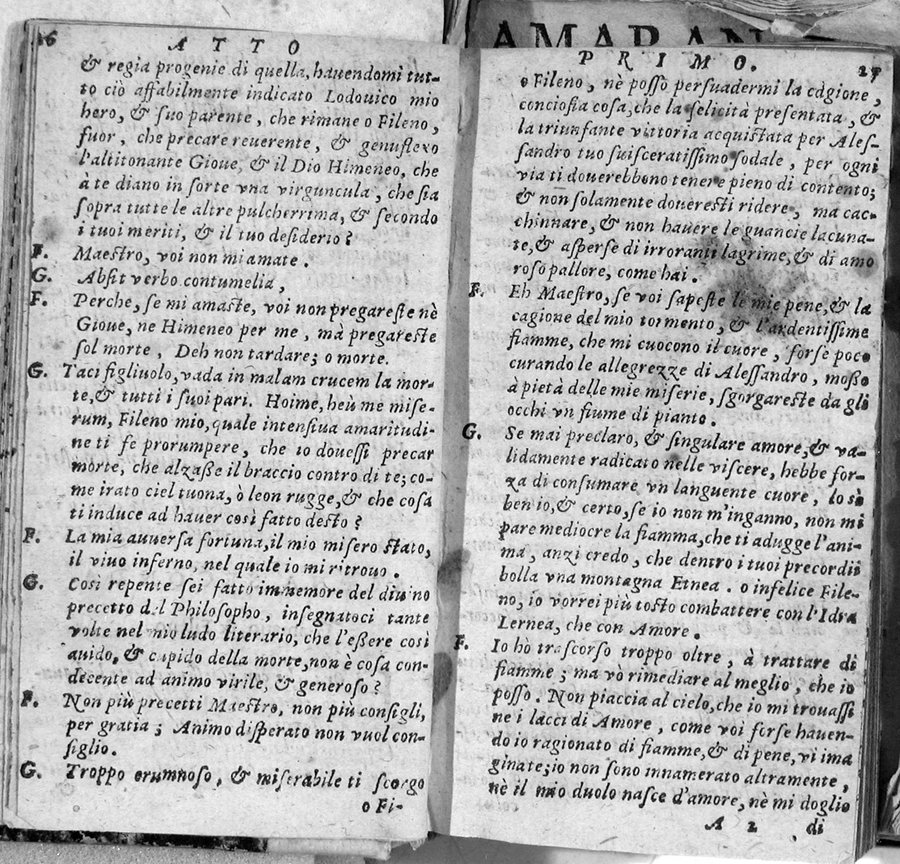 AMARAN
26
ATTO
& regia progenie di quella, hauendomi tut-
to ciò affabilmente indicato Lodouico mio
hero, & suo parente, che rimane o Fileno,
fuor, che precare reuerente, & genuflexo
l'altitonante Gioue, & il Dio Himeneo, che
à te diano in sorte vna virguncula, che sia
sopra tutte le altre pulcherrima, & secondo
i tuoi meriti, & il tuo desiderio?
F. Maestro, voi non mi amate.
G. Absit verbo contumelia,
F. Perche, se mi amaste, voi non pregareste nè
Gioue, ne Himeneo per me, mà pregareste
sol morte, Deh non tardare; o morte.
G. Taci figliuolo, vada in malam crucem la mor-
te, & tutti i suoi pari. Hoime, heù me mise-
rum, Fileno mio, quale intensiua amaritudi-
ne ti fe prorumpere, che io douessi precar
morte, che alzasse il braccio contro di te; co-
me irato ciel tuona, ò leon rugge, & che cosa
ti induce ad hauer così fatto desio?
F. La mia auuersa fortuna, il mio misero stato,
il viuo inferno, nel quale io mi ritrouo.
G. Così repente sei fatto immemore del diuino
precetto del Philosopho, insegnatoci tante
volte nel mio ludo literario, che l'essere così
auido, & cupido della morte, non è cosa con-
decente ad animo virile, & generoso?
F. Non più precetti Maestro, non più consigli,
per gratia; Animo disperato non vuol con-
siglio.
G. Troppo erumnoso, & miserabile ti scorgo
o Fi-
PRIMO.
27
o Fileno, nè posso persuadermi la cagione,
conciosia cosa, che la felicità presentata, &
la triunfante vittoria acquistata per Ales-
sandro tuo suisceratissimo sodale, per ogni
via ti douerebbono tenere pieno di contento;
& non solamente doueresti ridere, ma cac-
chinnare, & non hauere le guancie lacuna-
te, & asperse di irroranti lagrime, & di amo
roso pallore, come hai.
F. Eh Maestro, se voi sapeste le mie pene, & la
cagione del mio tormento, & l'ardentissime
fiamme, che mi cuocono il cuore, forse poco
curando le allegrezze di Alessandro, mosso
à pietà delle mie miserie, sgorgareste da gli
occhi vn fiume di pianto.
G. Se mai preclaro, & singulare amore, & va-
lidamente radicato nelle viscere, hebbe for-
za di consumare vn languente cuore, lo sò
ben io, & certo, se io non m'inganno, non mi
pare mediocre la fiamma, che ti adugge l'ani-
ma, anzi credo, che dentro i tuoi precordii
bolla vna montagna Etnea. o infelice File-
no, io vorrei più tosto combattere con l'Idra
Lernea, che con Amore.
F. Io hò trascorso troppo oltre, à trattare di
fiamme; ma vò rimediare al meglio, che io
posso. Non piaccia al cielo, che io mi trouassi
ne i lacci di Amore, come voi forse hauen-
do io ragionato di fiamme, & di pene, vi ima
ginate; io non sono innamerato altramente,
nè il mio duolo nasce d'amore, nè mi doglio
A 2 di